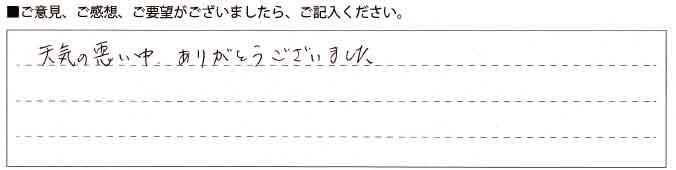 ■ご意見、ご感想、ご要望がございましたら、ご記入ください。
天気の悪い中、ありがとうございました